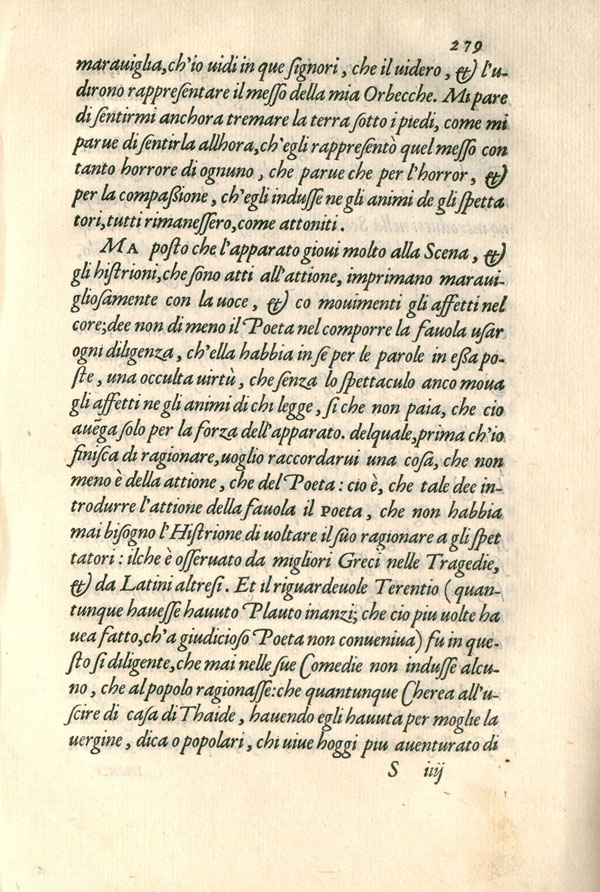 279
marauiglia, ch'io uidi in que ſignori, che il uidero, & l'u-
dirono rappreſentare il meſſo della mia Orbecche. Mi pare
di ſentirmi anchora tremare la terra ſotto i piedi, come mi
parue di ſentirla allhora, ch'egli rappreſentò quel meſſo con
tanto horrore di ognuno, che parue che per l'horror, &
per la compaſſione, ch'egli induſſe ne gli animi de gli ſpetta
tori, tutti rimaneſſero, come attoniti.
MA poſto che l'apparato gioui molto alla Scena, &
gli hiſtrioni, che ſono atti all'attione, imprimano maraui-
glioſamente con la uoce, & co mouimenti gli affetti nel
core; dee non di meno il Poeta nel comporre la fauola uſar
ogni diligenza, ch'ella habbia in ſe per le parole in eſſa po-
ſte, una occulta uirtù, che ſenza lo ſpettaculo anco moua
gli affetti ne gli animi di chi legge, ſi che non paia, che cio
auẽga ſolo per la forza dell'apparato. delquale, prima ch'io
finiſca di ragionare, uoglio raccordarui una coſa, che non
meno è della attione, che del Poeta: cio è, che tale dee in-
trodurre l'attione della fauola il Poeta, che non habbia
mai biſogno l'Hiſtrione di uoltare il ſuo ragionare a gli ſpet
tatori: ilche è oſſeruato da migliori Greci nelle Tragedie,
& da Latini altreſi. Et il riguardeuole Terentio (quan-
tunque haueſſe hauuto Plauto inanzi; che cio piu uolte ha
uea fatto, ch'a giudicioſo Poeta non conueniua) fu in que-
ſto ſi diligente, che mai nelle ſue Comedie non induſſe alcu-
no, che al popolo ragionaſſe: che quantunque Cherea all'u-
ſcire di caſa di Thaide, hauendo egli hauuta per moglie la
uergine, dica o popolari, chi uiue hoggi piu auenturato di
S iiij